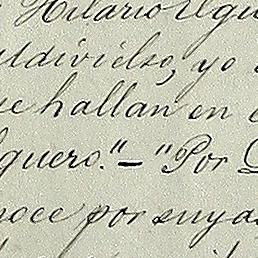 Hilario Elgue
aldivielso, yo
se hallan en
lguero."—"Por
noce por suya